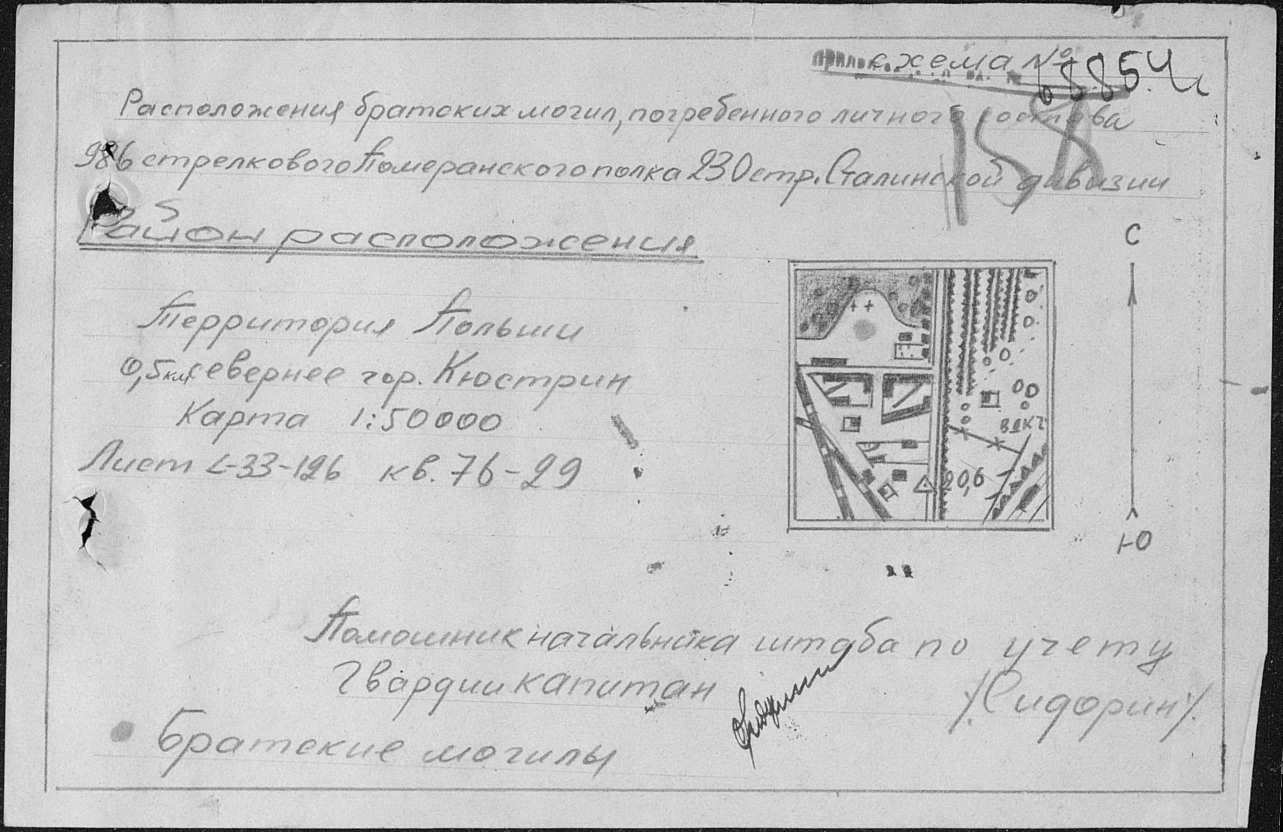 схема №
6885.4
158
Расположения братских могил, погребенного личного состава
986 стрелкового Померанского полка 230 стр. Сталинской дивизии
Район расположения
С
Территория Польши
0,5 км севернее гор. Кюстрин
Карта 1:50000
Лист L-33-126 кв. 76-29
20,6
Ю
Помошник начальника штаба по учету
Гвардии капитан
/Сидорин/
Братские могилы